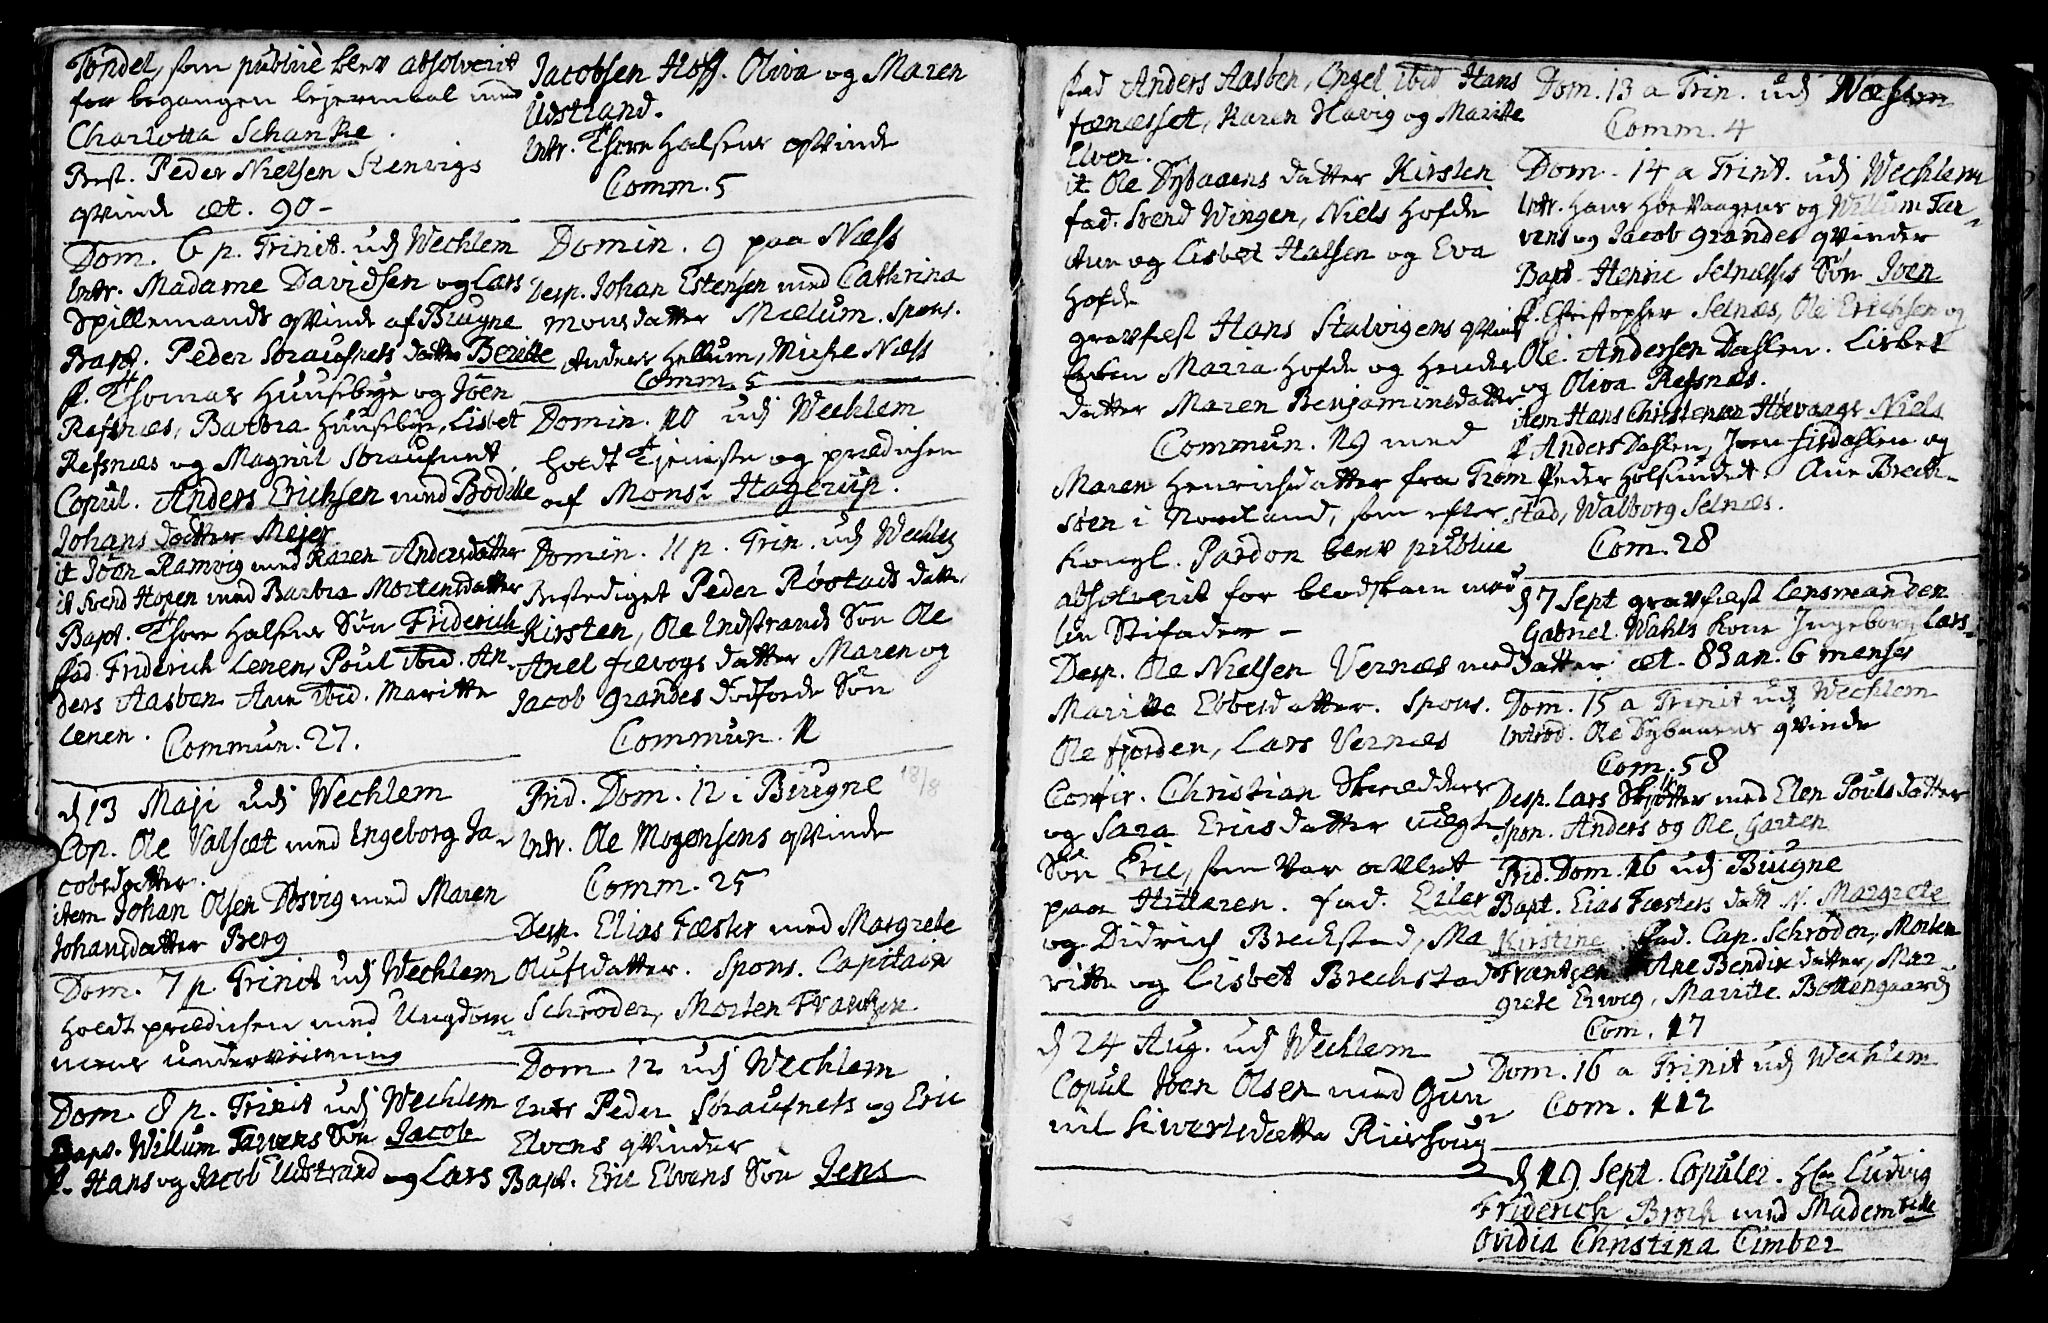 Tøndel, som publice blev absolverit
for begangen lejermaal med
Charlotta Schanke.
Best. Peder Nielsen Stenvigs
qvinde æt. 90 -
Dom. 6 p. Trinit. udj Wechlem
Intr. Madame Davidsen og Lars
Spillemands qvinde af Biugne
Bapt. Peder Soraufnets datter Beritte
f. Thomas Huusebye og Joen
Refsnæs, Barbra Huusebye, Lisbet
Refsnæs og Magnil Soraufnet.
Copul. Anders Erichsen med Bodille
Johans datter Mejer
it Joen Ramvig med Karen Andersdatter
it Svend Hogen med Barbra Mortensdatter
Bapt. Thore Halsens Søn Friderich
fad. Friderich Lenen, Poul ibid. An-
ders Aasben Ane ibid. Maritte
Lenen.
Commun. 27.
d 13 Maji udj Wechlem
Cop. Ole Valsæt med Ingeborg Ja-
cobsdatter.
item Johan Olsen Døsvig med Maren
Johansdatter Berg
Dom. 7 p. Trinit udj Wechlem
holdt prædiken med Ungdom-
mens underviisning
Dom. 8 p. Trinit udj Wechlem
Bapt. Willum Tarvens Søn Jacob
f. Hans og Jacob Udstrand og Lars
Jacobsen Hoff. Oliva og Maren
Udstrand.
Intr. Thore Halsens qvinde
Comm. 5
Domin. 9 paa Næss
Desp. Johan Estensen med Cathrina
Monsdatter Mælum. Spons.
Anders Hellum, Michel Næss
Comm. 5
Domin. 10 udj Wechlem
holdt Tjeniste og prædiken
af Monsr Hagerup.
Domin. 11 p. Trin. udj Wechlem
Bestediget Peder Røstads datter
Kirsten, Ole Indstrands Søn Ole
Anel fævogs datter Maren og
Jacob Grandes dødfødde Søn
Commun. 11
Prid. Dom. 12 i Biugne 18/8
Intr. Ole Mogensens qvinde
Comm. 25
Desp. Elias Fæster med Margrete
Olufsdatter. Spons. Capitain
Schrøder, Morten Frantzen
Dom 12 udj Wechlem
Intr Peder Soraufnets og Eric
Elvens qvinder
Bapt. Eric Elvens Søn Jens
fad Anders Aasben, Engel ibid Hans
fænæsset, Karen Havig og Maritte
Elven.
it Ole Dybaaens datter Kirsten
fad. Svend Wingen, Niels Hofde
Ane og Lisbet Halsen og Eva
Hofde
gravfæst Hans Stalvigens qvinde
Maria Hofde og hendes
datter Maren Benjaminsdatter
Commun. 19 med
Maren Henrichsdatter fra Trom-
søen i Nordland, som efter
Kongl. Pardon blev publice
absolverit for blodskam med
sin Stifader -
Desp. Ole Nielsen Vernæs med
Maritte Ebbesdatter. Spons.
Ole fjorden, Lars Vernæs
Confir. Christian Skrædders
og Sara Ericsdatter uægte
Søn Eric, som var avlet
paa Hitteren. fad. Eiler
og Didrich Breckstad, Ma-
ritte og Lisbet Brechstad
d 24 Aug. udj Wechlem
Copul Joen Olsen med Gun-
nil Sivertsdatter Riersoug
Dom. 13 a Trin. udj Næsset
Comm. 4
Dom. 14 a Trinit. udj Wechlem
Intr. Hans Høevaagens og Willum Tar-
vens og Jacob Grandes qvinder
Bapt. Henric Selnæsses Søn Joen
f. Christopher Selnæs, Ole Erichsen og
Ole Andersen Dahlen. Lisbet
og Oliva Refsnæs.
item Hans Christensen Høevaags Niels
f Anders Dahlen, Joen Lisdahlen og
Peder Holsundet Ane Breck-
stad, Walborg Selnæs.
Com. 28
d 7 Sept gravfæst Lensmanden
Gabriel Wahls Kone Ingeborg Lars-
datter æt. 83 an. 6 menses
Dom. 15 a Trinit udj Wechlem
Introd. Ole Dybaaens qvinde
Com. 58
Desp. Lars Skjøtter med Elen Pouls datter
Spon. Anders og Ole Garten
Prid. Dom. 16 udj Biugne
Bapt. Elias Fæsters datt N. Margrete
Kirstine fad. Cap. Schrøder, Morten
Frantzen Ane Bendix datter, Mar-
grete Ervig, Maritte Bottengaard
Com. 17
Dom. 16 a Trinit udj Wechlem
Com. 112
d 19 Sept. Copuler. Hr Ludvig
Friderich Broch med Mademoiselle
Ovidia Christina Cimber